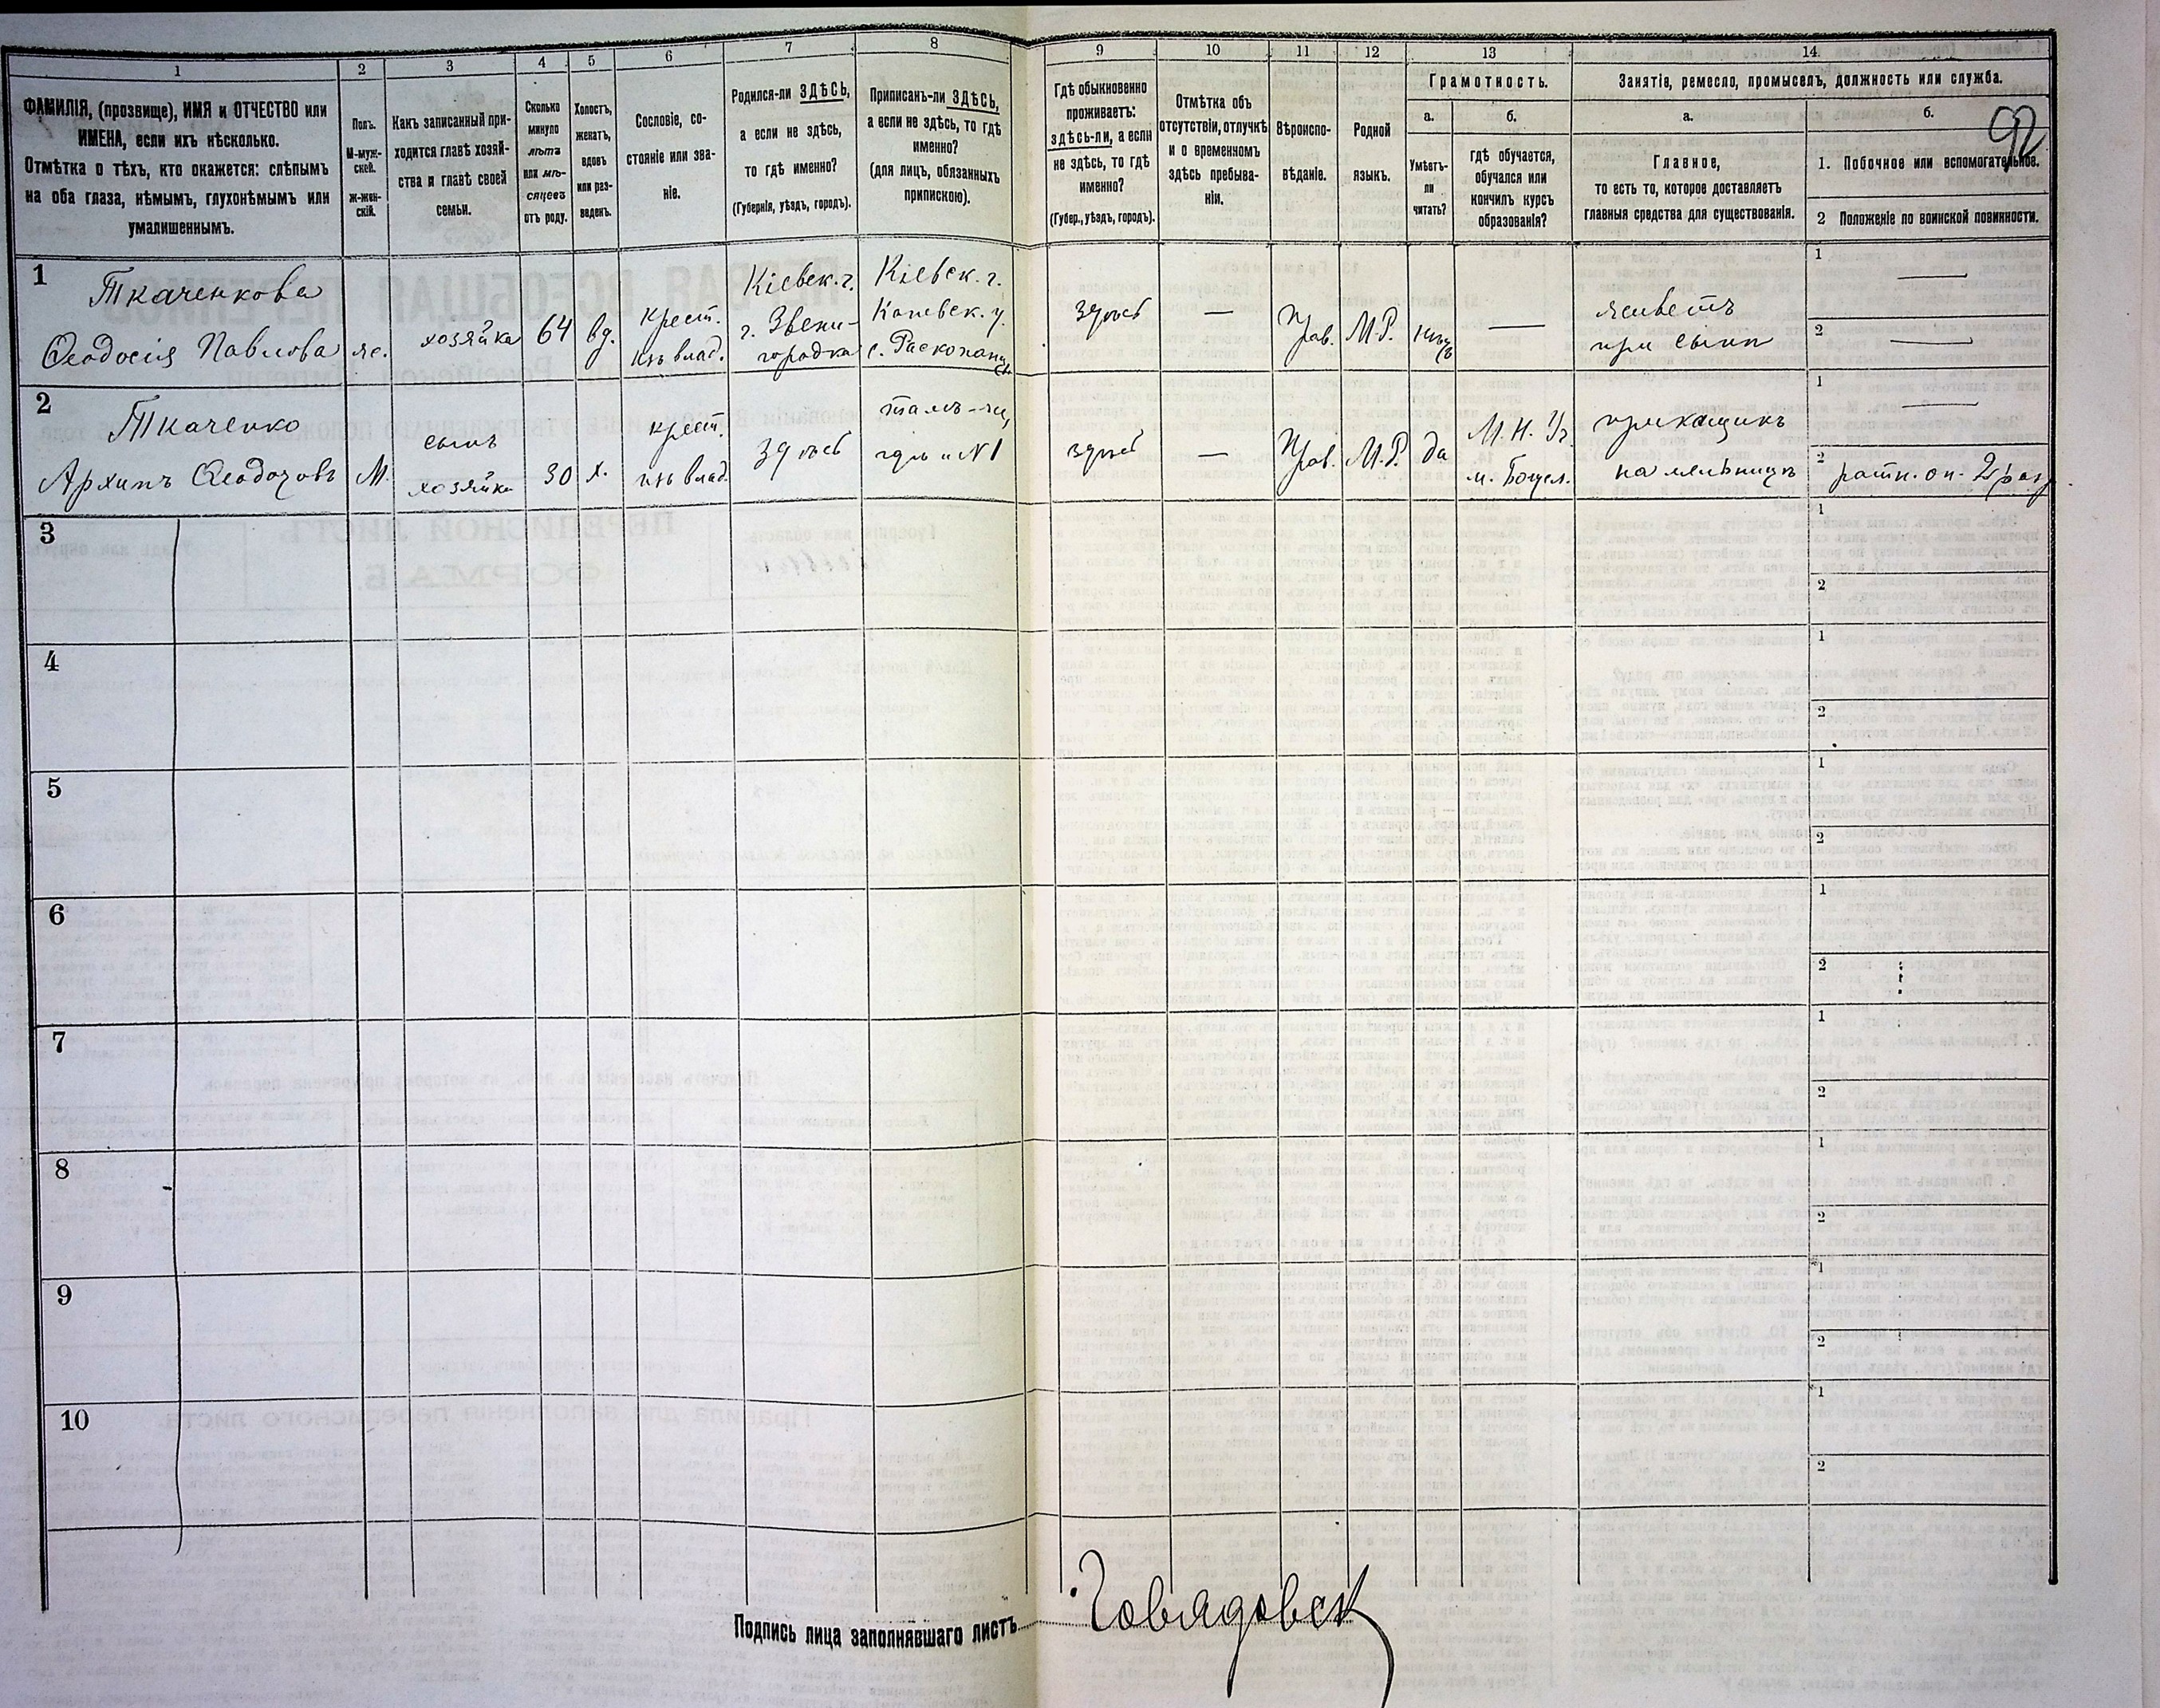 1
2
3
4
5
6
7
8
9
10
11
12
13
14
ФАМИЛІЯ, (прозвище), ИМЯ и ОТЧЕСТВО или
ИМЕНА, если ихъ нѣсколько.
Отмѣтка о тѣхъ, кто окажется: слѣпымъ
на оба глаза, нѣмымъ, глухонѣмымъ или
умалишеннымъ.
Полъ.
М-муж-
ской.
ж-жен-
скій.
Какъ записанный при-
ходится главѣ хозяй-
ства и главѣ своей
семьи.
Сколько
минуло
лѣтъ
или мѣ-
сяцевъ
отъ роду.
Холостъ,
женатъ,
вдовъ
или раз-
веденъ.
Сословіе, со-
стояніе или зва-
ніе.
Родился-ли ЗДѢСЬ,
а если не здѣсь,
то гдѣ именно?
(Губернія, уѣздъ, городъ).
Приписанъ-ли ЗДѢСЬ,
а если не здѣсь, то гдѣ
именно?
(для лицъ, обязанныхъ
припискою).
Гдѣ обыкновенно
проживаетъ:
здѣсь-ли, а если
не здѣсь, то гдѣ
именно?
(Губер., уѣздъ, городъ).
Отмѣтка объ
отсутствіи, отлучкѣ
и о временномъ
здѣсь пребыва-
ніи.
Вѣроиспо-
вѣданіе.
Родной
языкъ.
Грамотность.
а.
Умѣетъ-
ли
читать?
б.
Гдѣ обучается,
обучался или
кончилъ курсъ
образованія?
Занятія, ремесло, промыселъ, должность или служба.
а.
Главное,
то есть то, которое доставляетъ
главныя средства для существованія.
б.
92
1. Побочное или вспомогательное.
2 Положеніе по воинской повинности.
1
Ткаченкова
Ѳеодосія Павлова
же.
хозяйка
64
вд.
крест.
изъ влад.
Кіевск. г.
г. Звени-
городка
Кіевск. г.
Каневск. у.
с. Расконанц.
здѣсь
—
Прав.
М.Р.
нѣтъ
—
живетъ
при сынѣ
1 —
2 —
2
Ткаченко
Архипъ Ѳеодоровъ
М.
сынъ
хозяйки
30
х.
крест.
изъ влад.
здѣсь
тамъ-же,
гдѣ и №1
здѣсь
—
Прав.
М.Р.
да
М. Н. Уч.
м. Богусл.
прикащикъ
на мельницѣ
1 —
2 ратн. оп. 2 разр.
3
1
2
4
1
2
5
1
2
6
1
2
7
1
2
8
1
2
9
1
2
10
1
2
Подпись лица заполнявшаго листъ